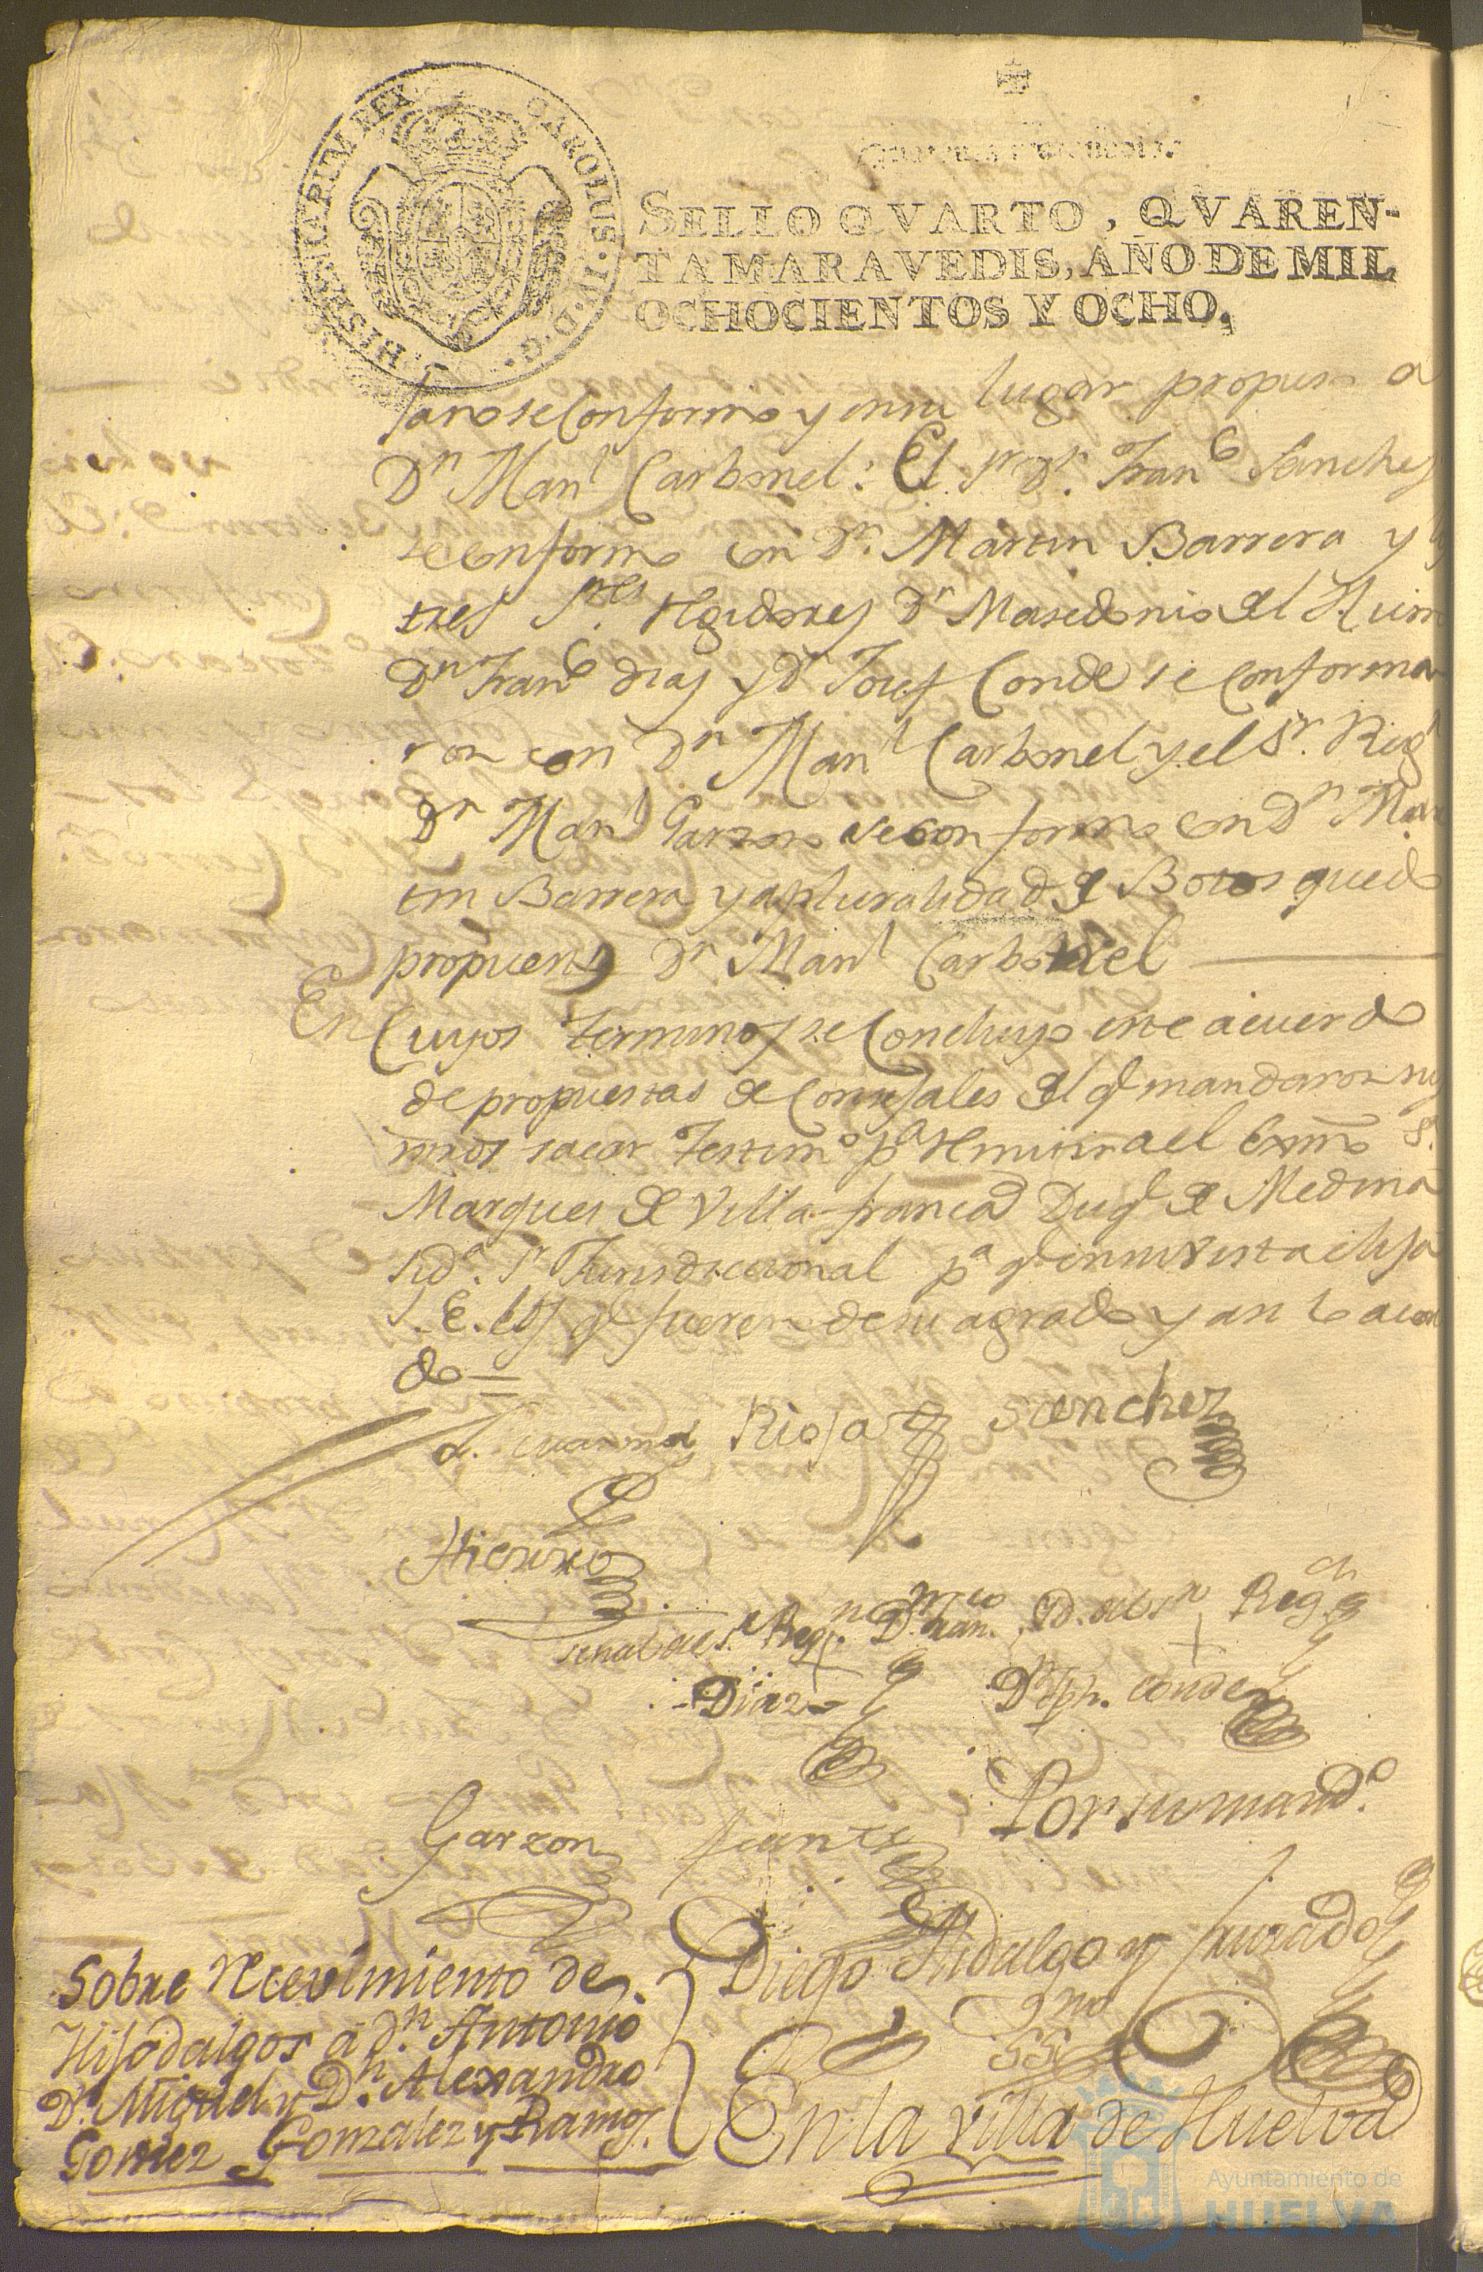 CAROLUS·IV·D·G·HISPANIAR·REX
SELLO QVARTO, QVAREN-
TA MARAVEDIS, AÑO DE MIL
OCHOCIENTOS Y OCHO.
tano se Conformo y en su lugar propuso a
Dn Manl Carbonel: El Sr Dn. Franco Sanchez
se conformo con Dn. Martin Barrera y los
tres Sres. Rgidores Dn Masedonio del Hierro
Dn Franco dias y Dn Josef Conde se conforma
ron con Dn Manl Carbonel y el Sr. Regr
Dn Manl Garzon se conformo con Dn Mar
tin Barrera y a pluralidad de Botos quedo
propuesto Dn Manl Carbonel
En Cuyos terminos se Concluyo este acuerdo
de propuestas de Consejales del q mandaron sus
mrds sacar testimo pa Remitir a el Exmo Sr.
Marques de Villafranca Duq de Medina
Sida. Sr Jurisdiccional pa q en su vista elija
S.E. los q fueren de su agrado y asi lo acor
do=
Rioja Sanchez
Hierro
señal del Sr. Regr. Dn Franco. Yd. del Sr Regor
Diaz Dn Jph. Conde
Garzon Por su mando.
Diego Hidalgo y Jurado
Sobre Recevimiento de
Hijodalgos a dn. Antonio
Dn. Miguel y Dn. Alexandro
Gomez Gonzalez y Ramos.
En la villa de Huelva
Ayuntamiento de
HUELVA